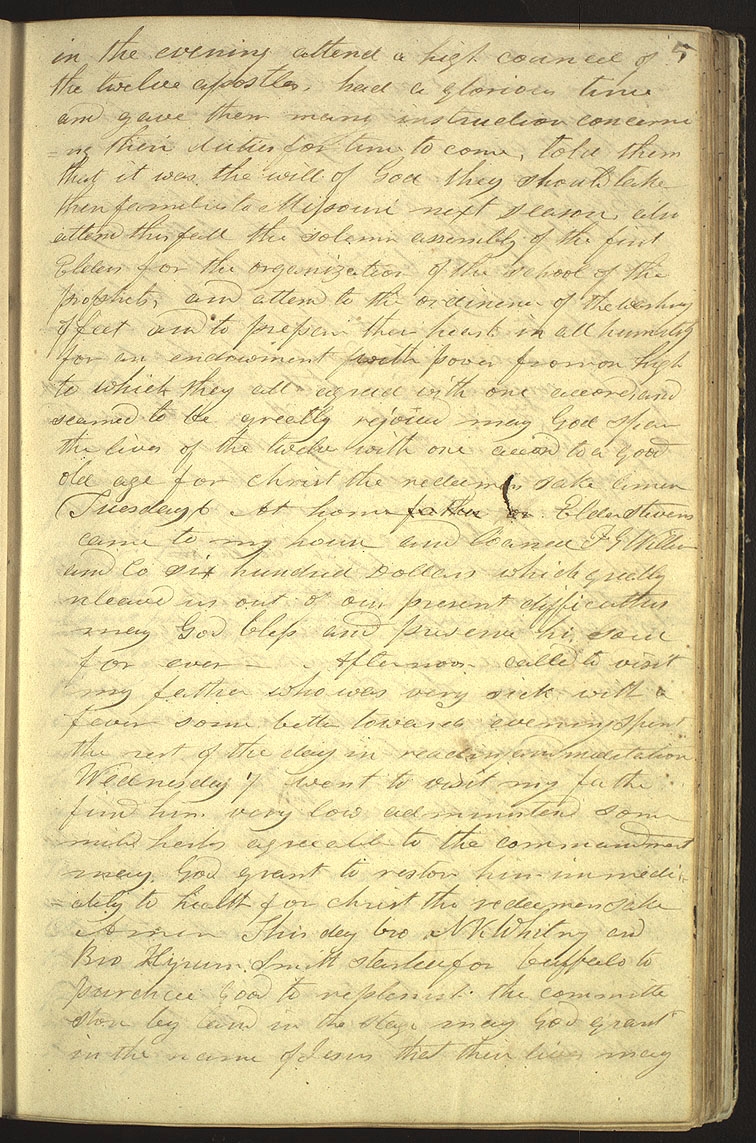 5
in the evening attend a high council of
the twelve apostles, had a glorious time
and gave them many instruction concerni
=ng their duties for time to come, told them
that it was the will of God they should take
their families to Missouri next season, also
attend this fall the solemn assembly of the first
Elders for the organization of the school of the
prophets, and attend to the ordinence of the washing
of feet and to prepare ther hearts in all humility
for an endowment with power from on high
to which they all agreed with one accord, and
seamed to be greatly rejoiced may God spare
the lives of the twelve with one accord to a good
old age for christ the redeemers sake amen
Tuesday 6 At home father or Elder Stevens
came to my house and loaned F G Williams
and Co six hundred Dollars which greatly
releaved us out of our present difficulties
may God bless and preserve his soul
for ever — Afternoon called to visit
my father who was very sick with a
fever some better towards evening spent
the rest of the day in reading and meditation
Wednesday 7 went to visit my father
find him very low administered some
mild herbs agreeable to the commandment
may God grant to restore him immedi=
=ately to health for christ the redeemers sake
Amen This day bro N K Whitny and
Bro Hyrum Smith started for buffalo to
purchace Good to replenish the committe
store by land in the stage may God grant
in the name of Jesus that their lives may